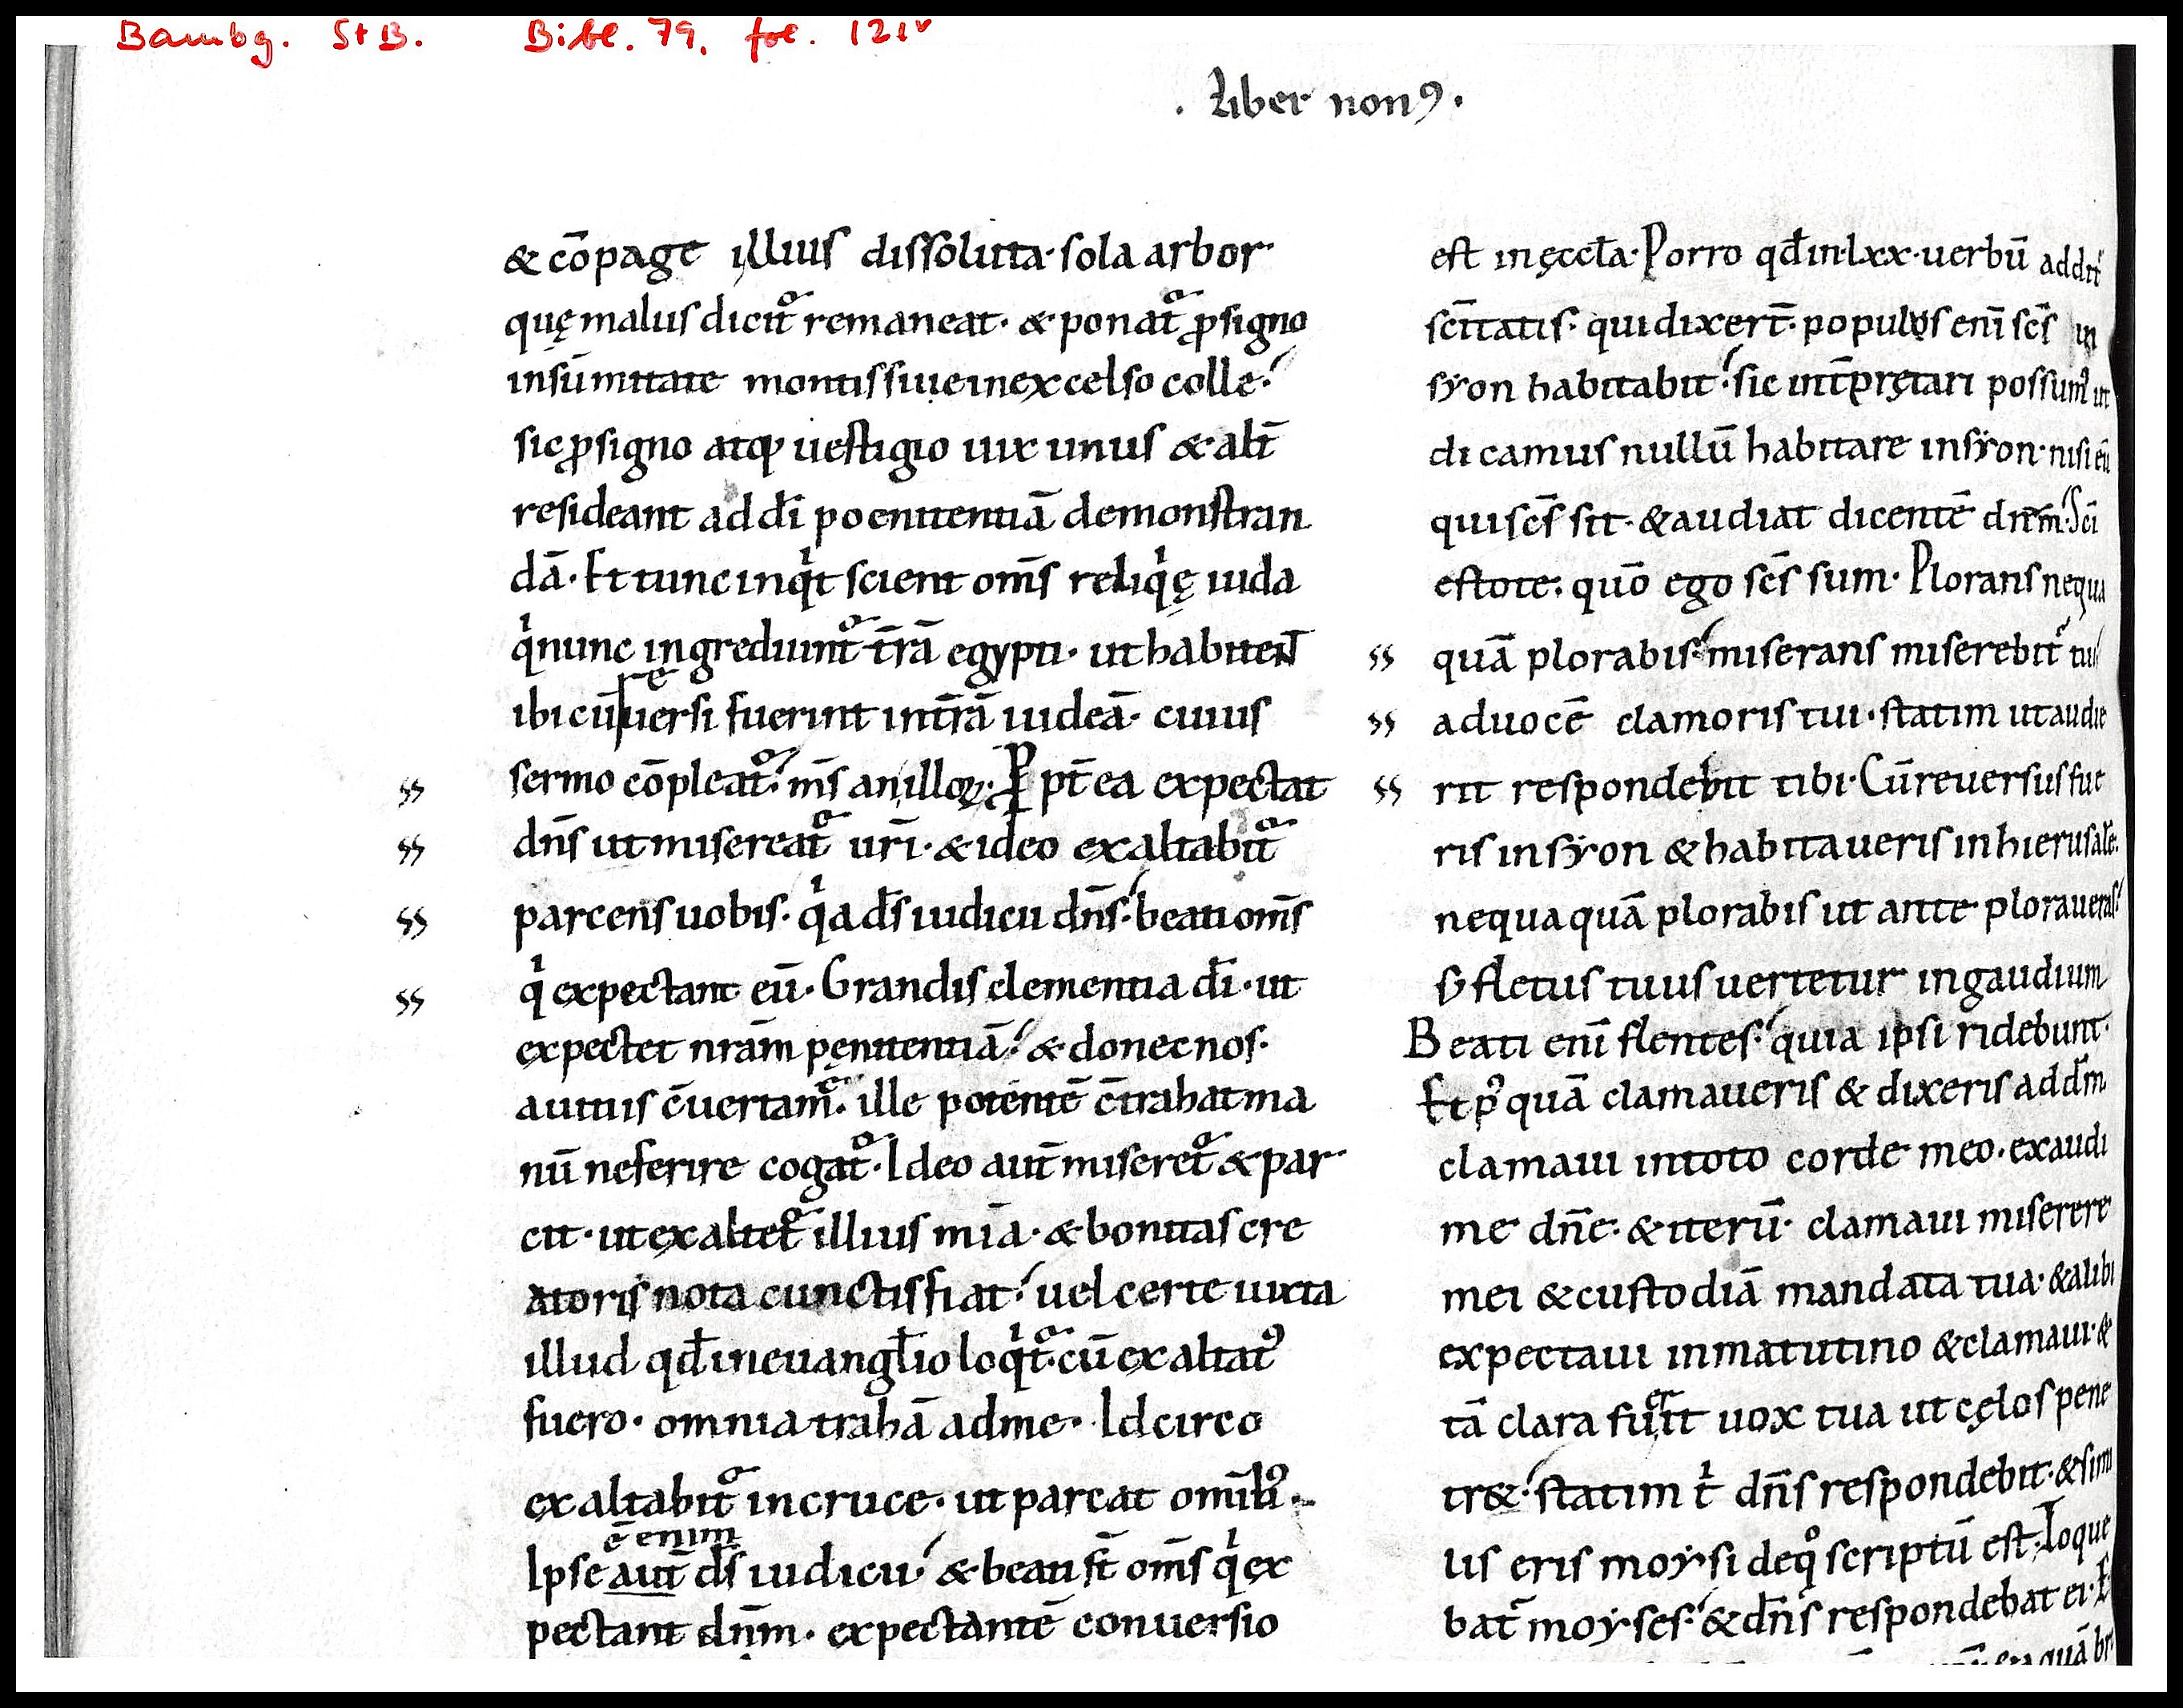 Bambg. StB. Bibl. 79. fol. 121v
. Liber nonꝰ.
& cōpage illius dissoluta· sola arbor·
quę malus dicit᷑ remaneat· & ponat᷑ ꝓ signo
in sūmitate montis siue in excelso colle·
sic ꝓ signo atqꝫ uestigio uix unus & alt̄
resideant ad dī poenitentiā demonstran
dā· Et tunc inqͥt scient om̄s reliqͥę iuda
qͥ nunc ingrediunt᷑ t̄rā egypti· ut habitent
ibi cū reuersi fuerint in t̄rā iudeā· cuius
sermo cōpleat᷑· m̄s an illoꝝ· Ꝓpt̄ea expectat
dn̄s ut misereat᷑ ur̄i· & ideo exaltabit᷑
parcens uobis· qͥa ds̄ iudicii dn̄s· beati om̄s
qͥ expectant eū· Grandis clementia dī· ut
expectet nrām pęnitentiā· & donec nos·
a uitiis c̄uertam᷑· ille potentē c̄trahat ma
nū ne ferire cogat᷑· Ideo aut̄ miseret᷑ & par·
cit· ut exaltet᷑ illius mīa· & bonitas cre
atoris nota cunctis fiat· uel certe iuxta
illud qd̄ in euangl̄io loqͥt᷑· cū exaltatꝰ
fuero· omnia trahā ad me· Idcirco
exaltabit᷑ in cruce· ut parcat om̄ibꝰ·
ē enim
Ipse aut̄ ds̄ iudicii· & beati st̄ om̄s qͥ ex
pectant dn̄m· expectantē conuersio
est in ęccl̄a· Porro qd̄ in·lxx·uerbū addit᷑
sc̄itatis· qui dixert̄· populus enī sc̄s in
syon habitabit· sic int̄p̄ꝛętari possumꝰ ut
dicamus nullū habitare in syon· nisi eū
qui sc̄s sit· & audiat dicentē dn̄m· Sc̄i
estote· quō ego sc̄s sum· Plorans nequa
quā plorabis· miserans miserebit᷑ tui
ad uocē clamoris tui· statim ut audie
rit respondebit tibi· Cū reuersus fue
ris in syon & habitaueris in hierusalē·
nequaquā plorabis ut ante ploraueras·
sꝫ fletus tuus uertetur in gaudium
Beati enī flentes· quia ipsi ridebunt·
Et pꝰquā clamaueris & dixeris ad dm̄
clamaui in toto corde meo· exaudi
me dn̄e· & iterū· clamaui miserere
mei & custodiā mandata tua· & alibi
expectaui in matutino & clamaui· &
tā clara fuerit uox tua ut cęlos pene
tr&· statim tͥ dn̄s respondebit· & simi
lis eris moysi de qͦ scriptū est· Loque
bat᷑ moyses· & dn̄s respondebat ei·